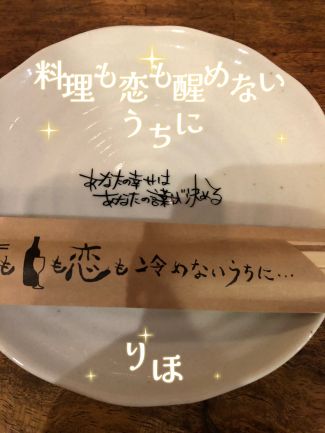 料理も恋も醒めない
うちに
あなたの幸せは
あなたの言葉が決める
も
も恋も冷めないうちに…
りほ